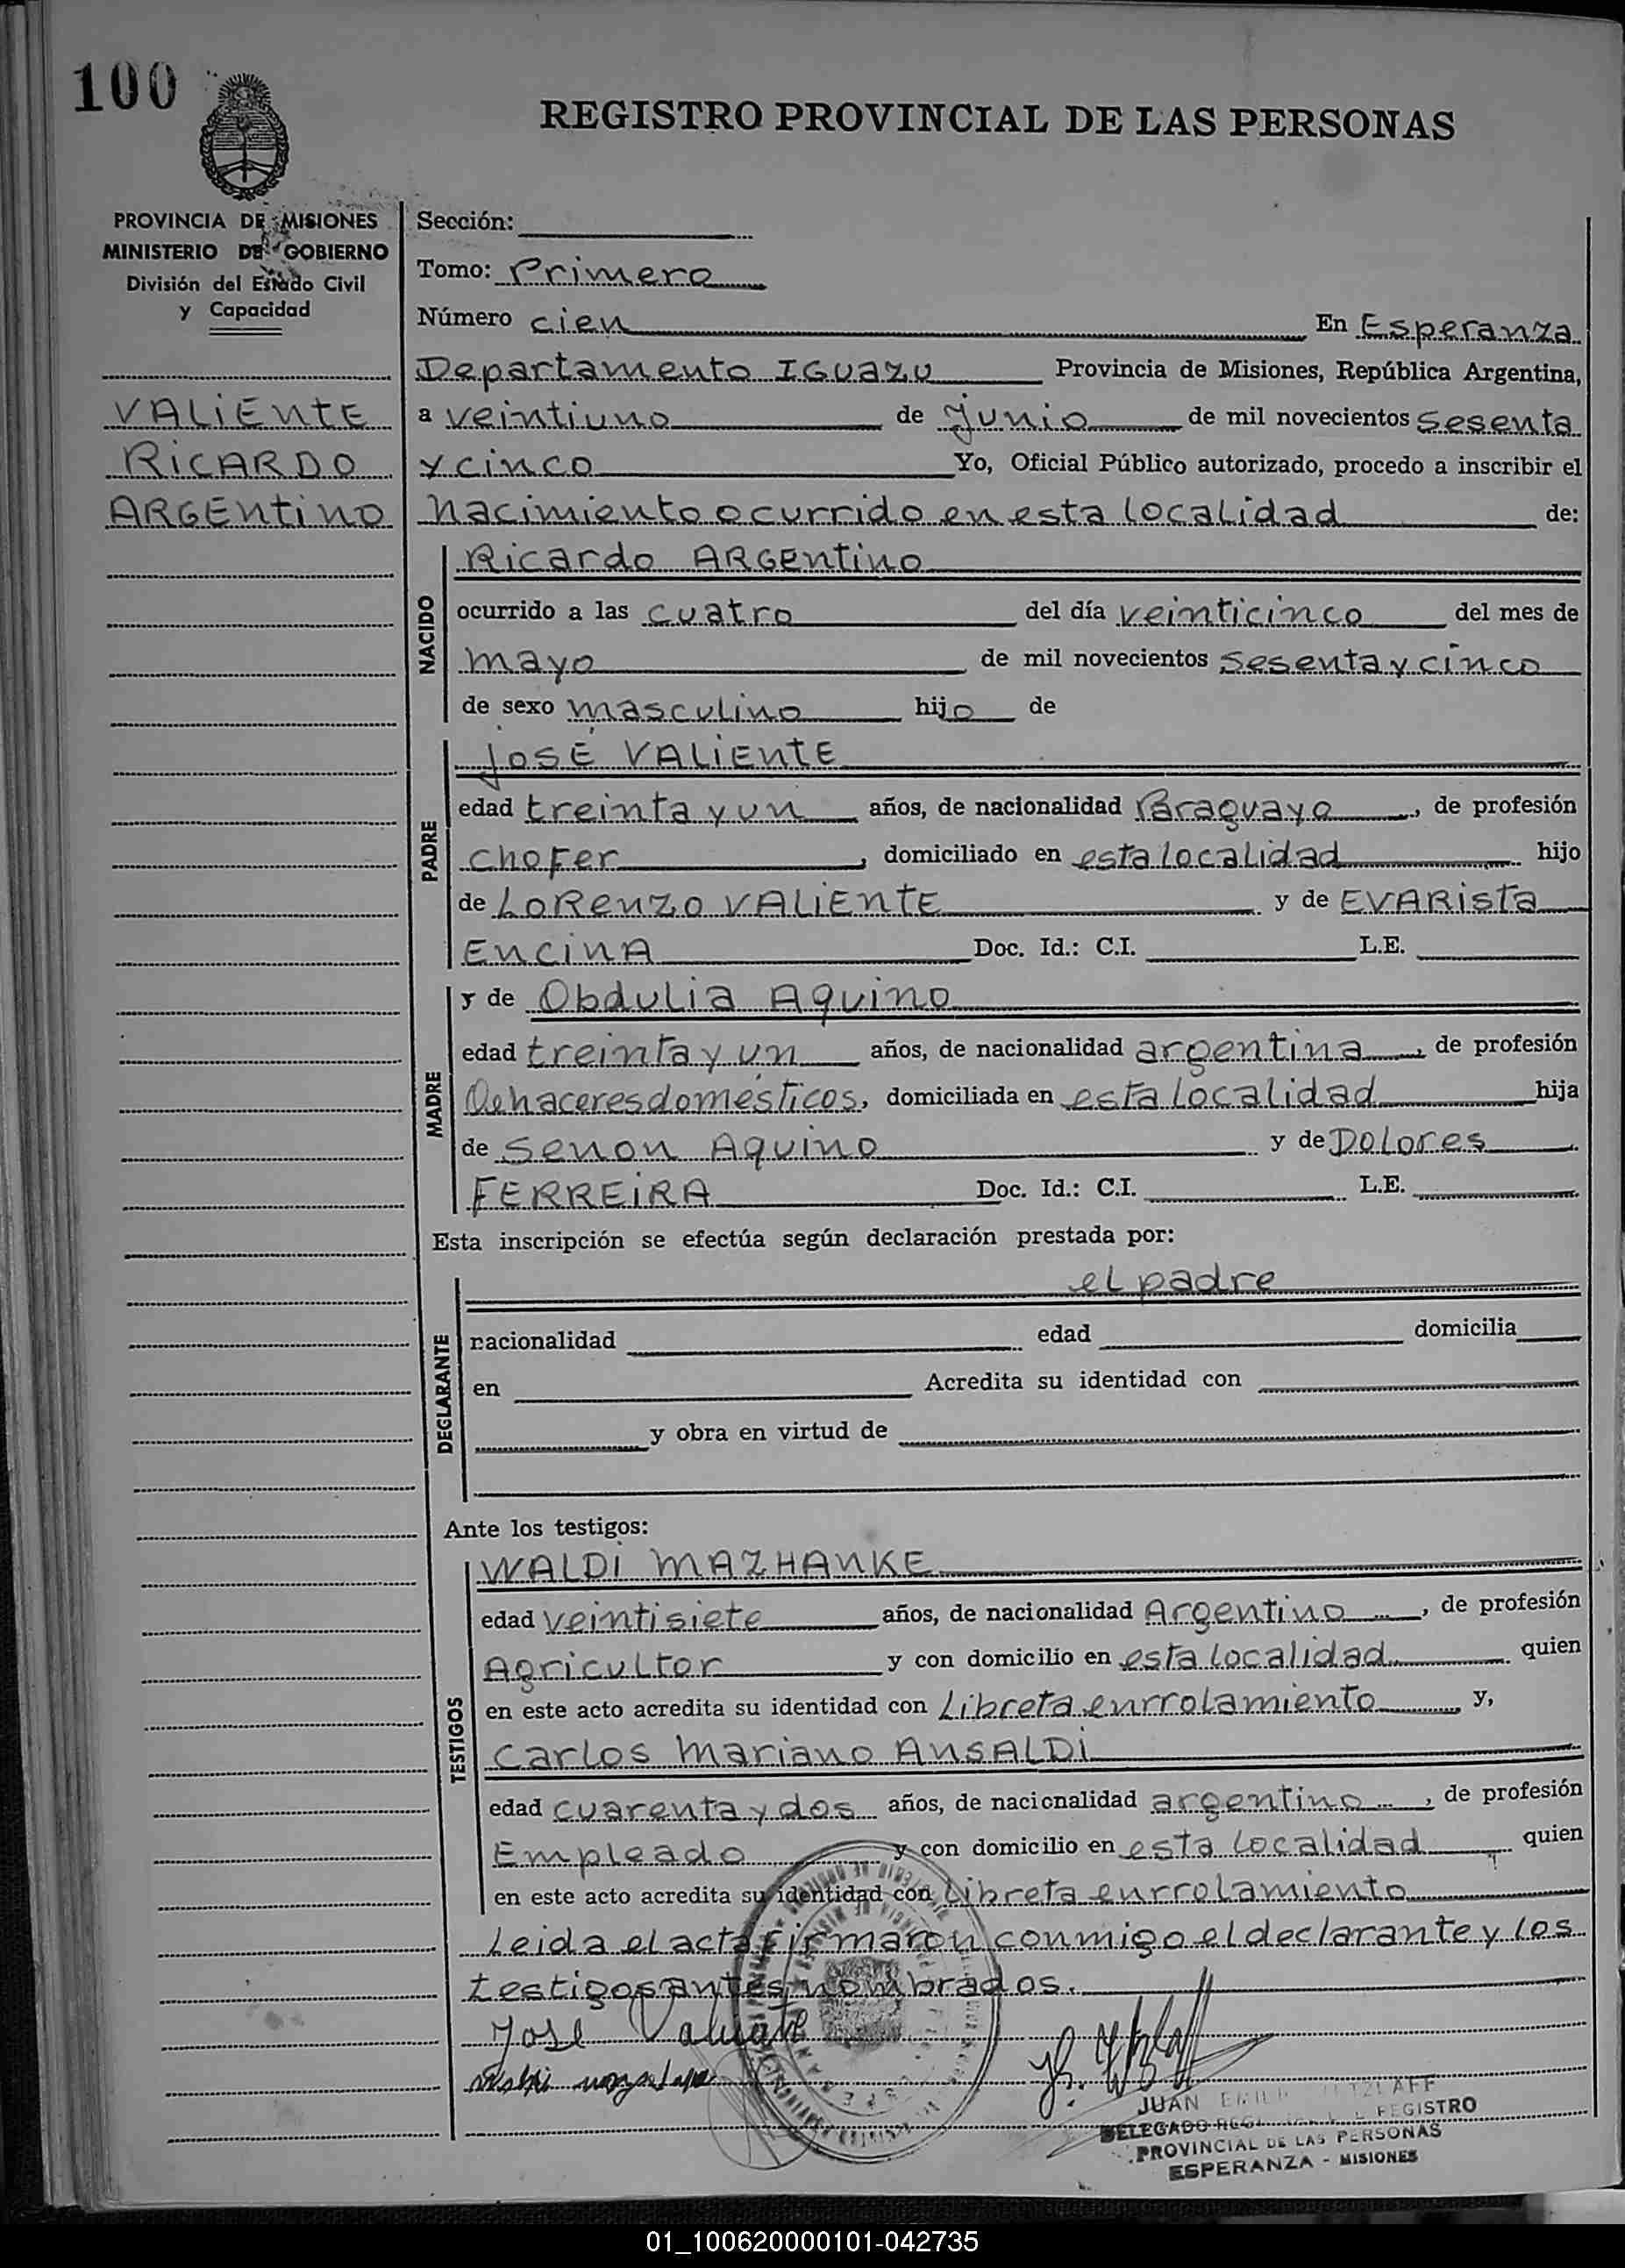 100
REGISTRO PROVINCIAL DE LAS PERSONAS
PROVINCIA DE MISIONES
MINISTERIO DE GOBIERNO
División del Estado Civil
y Capacidad
VALIENTE
RICARDO
ARGENTINO
Sección:
Tomo: Primero
Número cien En Esperanza
Departamento IGUAZU Provincia de Misiones, República Argentina,
a veintiuno de Junio de mil novecientos sesenta
y cinco Yo, Oficial Público autorizado, procedo a inscribir el
nacimiento ocurrido en esta localidad de:
NACIDO
Ricardo ARGENTINO
ocurrido a las cuatro del día veinticinco del mes de
mayo de mil novecientos sesenta y cinco
de sexo masculino hijo de
PADRE
JOSÉ VALIENTE
edad treinta y un años, de nacionalidad Paraguayo, de profesión
chofer, domiciliado en esta localidad hijo
de LORENZO VALIENTE y de EVARISTA
ENCINA Doc. Id.: C.I. L.E.
MADRE
y de Obdulia Aquino
edad treinta y un años, de nacionalidad argentina, de profesión
Qehaceres domésticos, domiciliada en esta localidad hija
de Senon Aquino y de Dolores
FERREIRA Doc. Id.: C.I. L.E.
Esta inscripción se efectúa según declaración prestada por:
DECLARANTE
el padre
nacionalidad edad domicilia
en Acredita su identidad con
y obra en virtud de
Ante los testigos:
TESTIGOS
WALDI MAZHANKE
edad veintisiete años, de nacionalidad Argentino, de profesión
Agricultor y con domicilio en esta localidad quien
en este acto acredita su identidad con Libreta enrrolamiento y,
Carlos Mariano ANSALDI
edad cuarenta y dos años, de nacionalidad argentino, de profesión
Empleado y con domicilio en esta localidad quien
en este acto acredita su identidad con Libreta enrrolamiento
Leida el acta firmaron conmigo el declarante y los
testigos antes nombrados.
José Valiente
JUAN
DELEGADO REGISTRO
PROVINCIAL DE LAS PERSONAS
ESPERANZA - MISIONES
01_100620000101-042735